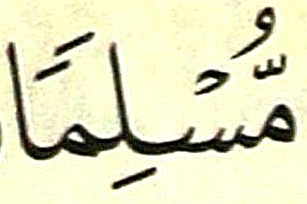 مُّسْلِمًا